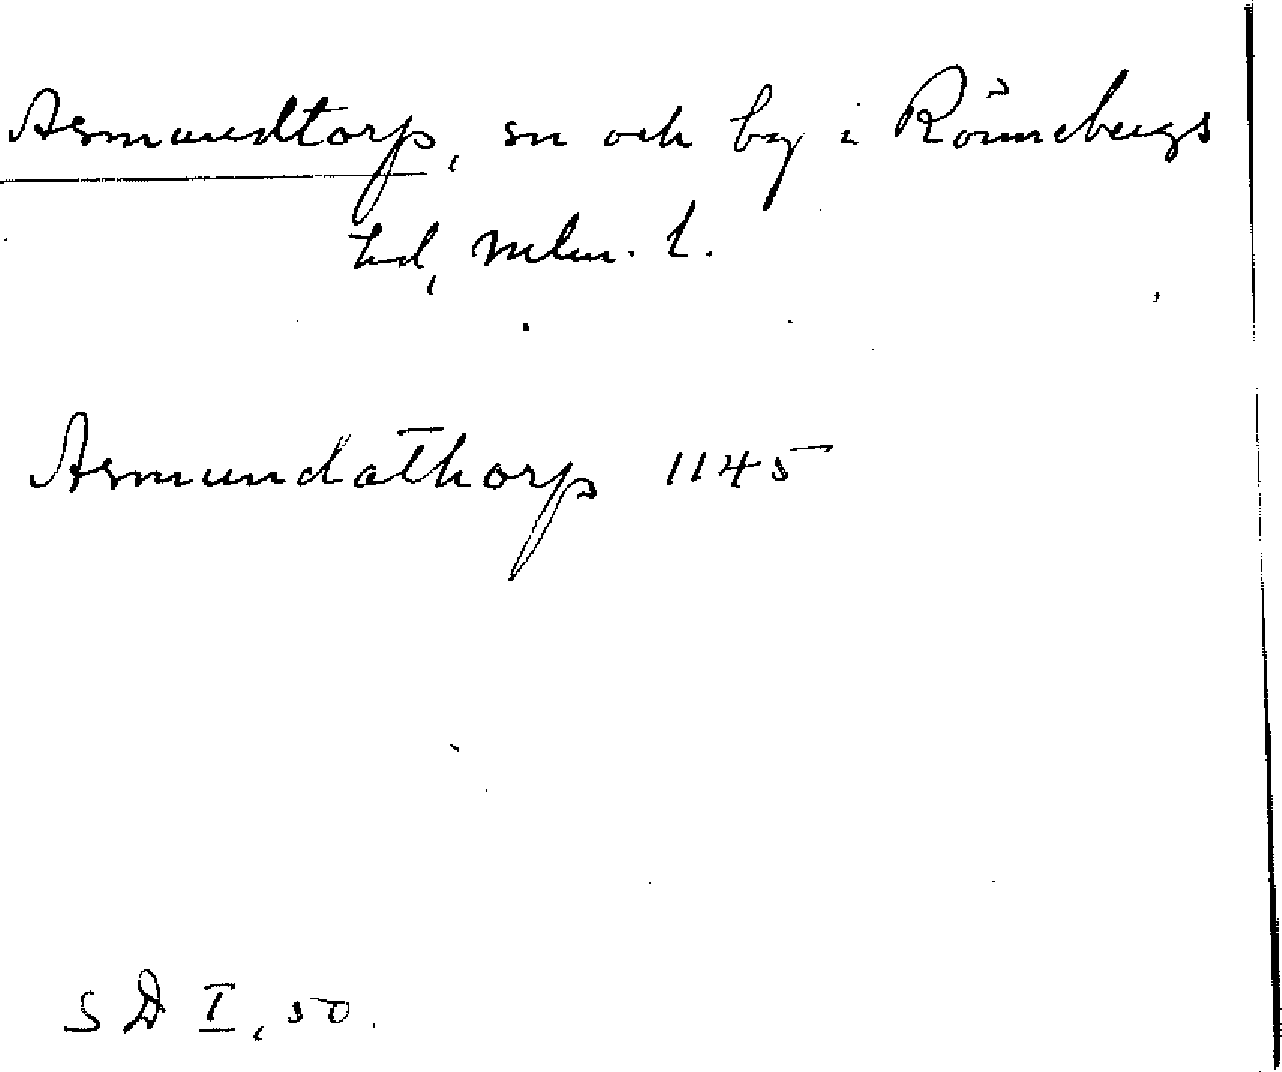 Asmundtorp, sn och by i Rönnebergs
hd, Mlm. l.
Asmundathorp 1145
S D I, 50.